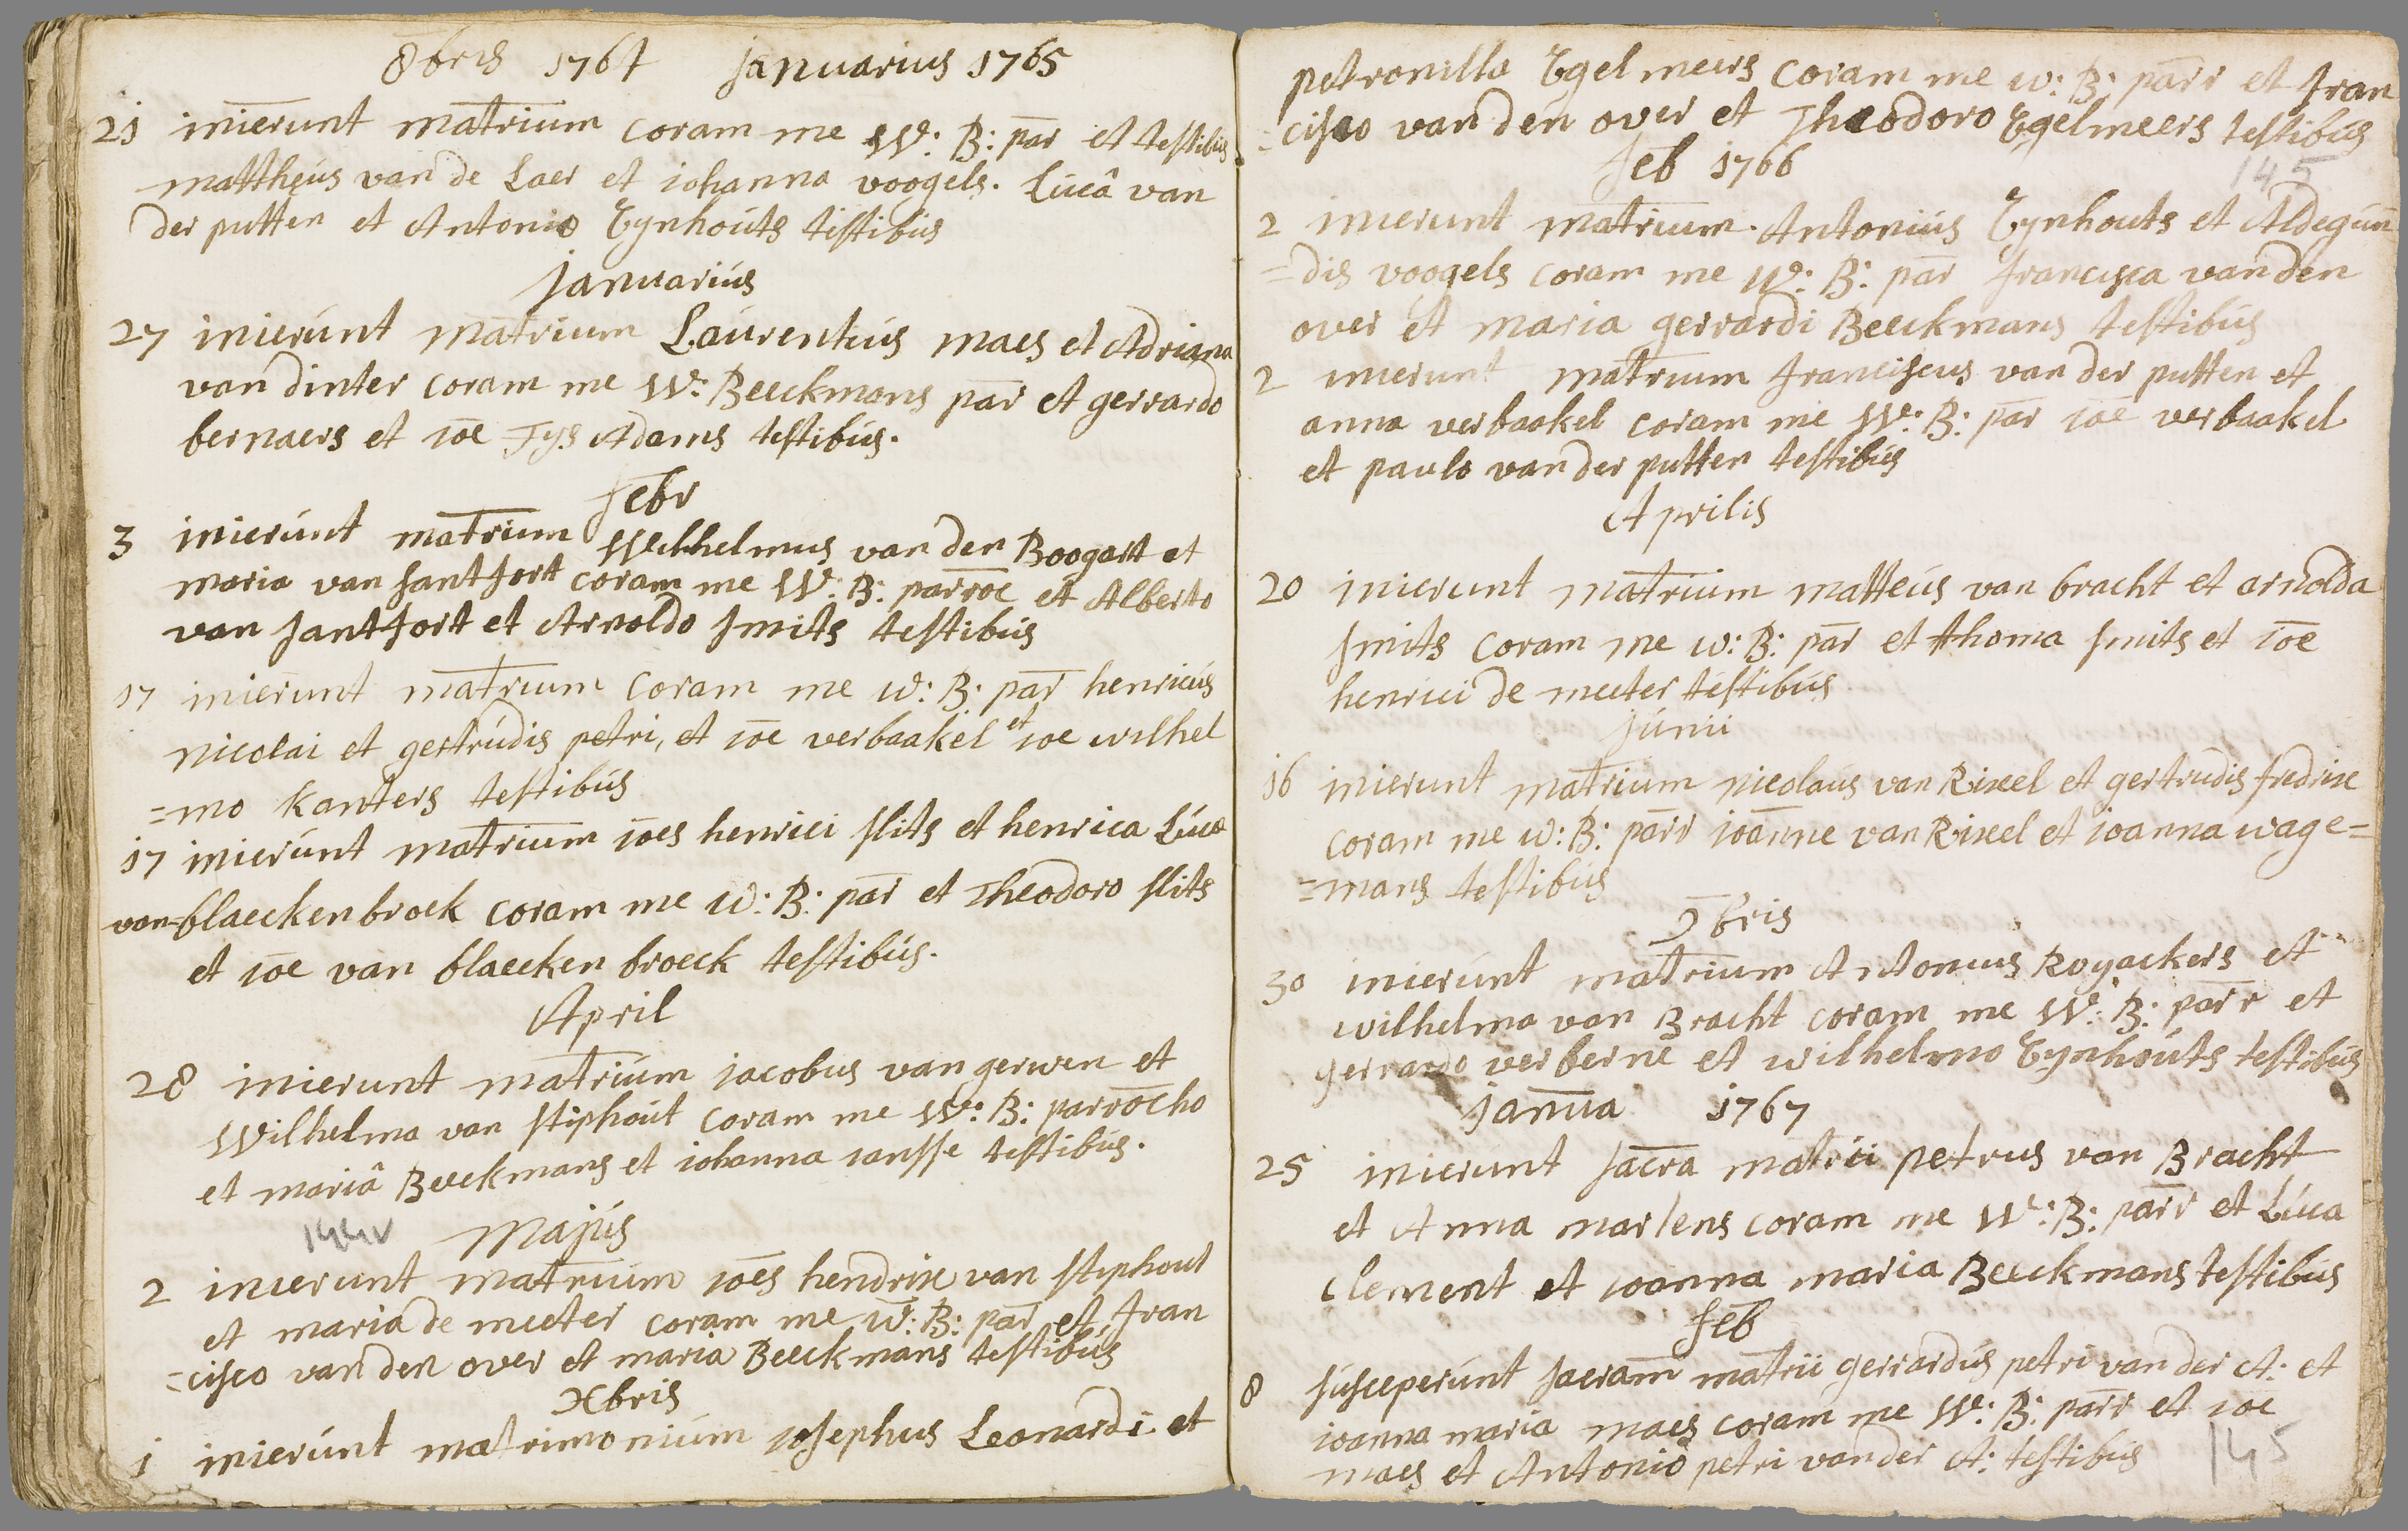 8bris 1764 Januarius 1765
21 inierunt matrium coram me W: B: par et testibus
mattheus van de Laer et iohanna voogels. Lucâ van
der putten et Antonio Eynhouts testibus
Januarius
27 inierunt matrium Laurentius maes et Adriana
van dinter coram me W: Beeckmans par et gerrardo
bernaers et ioe Tys Adams testibus.
Febr
3 inierunt matrium Wilhelmus van den Boogart et
maria van santfort coram me W: B: parroc et Alberto
van santfort et Arnoldo smits testibus
17 inierunt matrium coram me W: B: par henricus
nicolai et gertrudis petri, et ioe verbaakel et ioe wilhel
=mo kanters testibus
17 inierunt matrium ioes henrici slits et henrica Luca
van=blaeckenbroek coram me W: B: par et Theodoro slits
et ioe van blaecken broeck testibus.
April
28 inierunt matrium iacobus van gerwen et
Wilhelma van stiphout coram me W: B: parrocho
et mariâ Beeckmans et iohanna iansse testibus.
144v Majus
2 inierunt matrium ioes hendrix van stiphout
et maria de meeter coram me W: B: par et Fran
=cisco van den over et maria Beeckmans testibus
Xbris
1 inierunt matrimonium iosephus Leonardi et
petronilla Egelmeers coram me w: B: parr et Fran
=cisco van den over et Theodoro Egelmeers testibus
Feb 1766
145
2 inierunt matrium. Antonius Eynhouts et Aldegun
=dis voogels coram me W: B: par francisca van den
over et maria gerrardi Beeckmans testibus
2 inierunt matrium Franciscus van der putten et
anna verbaakel coram me W: B: par ioe verbaakel
et paulo van der putten testibus
Aprilis
20 inierunt matrium matteus van bracht et arnolda
smits coram me w: B: par et thoma smits et ioe
henrici de meeter testibus
Junii
16 inierunt matrium nicolaus van Rixeel et gertrudis fredrix
coram me w: B: parr ioanne van Rixeel et ioanna wage=
=mans testibus
9bris
30 inierunt matrium Antonius Royackers et
wilhelma van Bracht coram me W: B: parr et
gerrardo verberne et wilhelmo Eynhouts testibus
Janua 1767
25 inierunt sacra matrii petrus van Bracht
et Anna martens coram me W: B: parr et Luca
Clement et ioanna maria Beeckmans testibus
Feb
8 susceperunt sacram matrii gerrardus petri van der A: et
ioanna maria maes coram me W: B: parr et ioe
maes et Antonio petri van der A: testibus
145